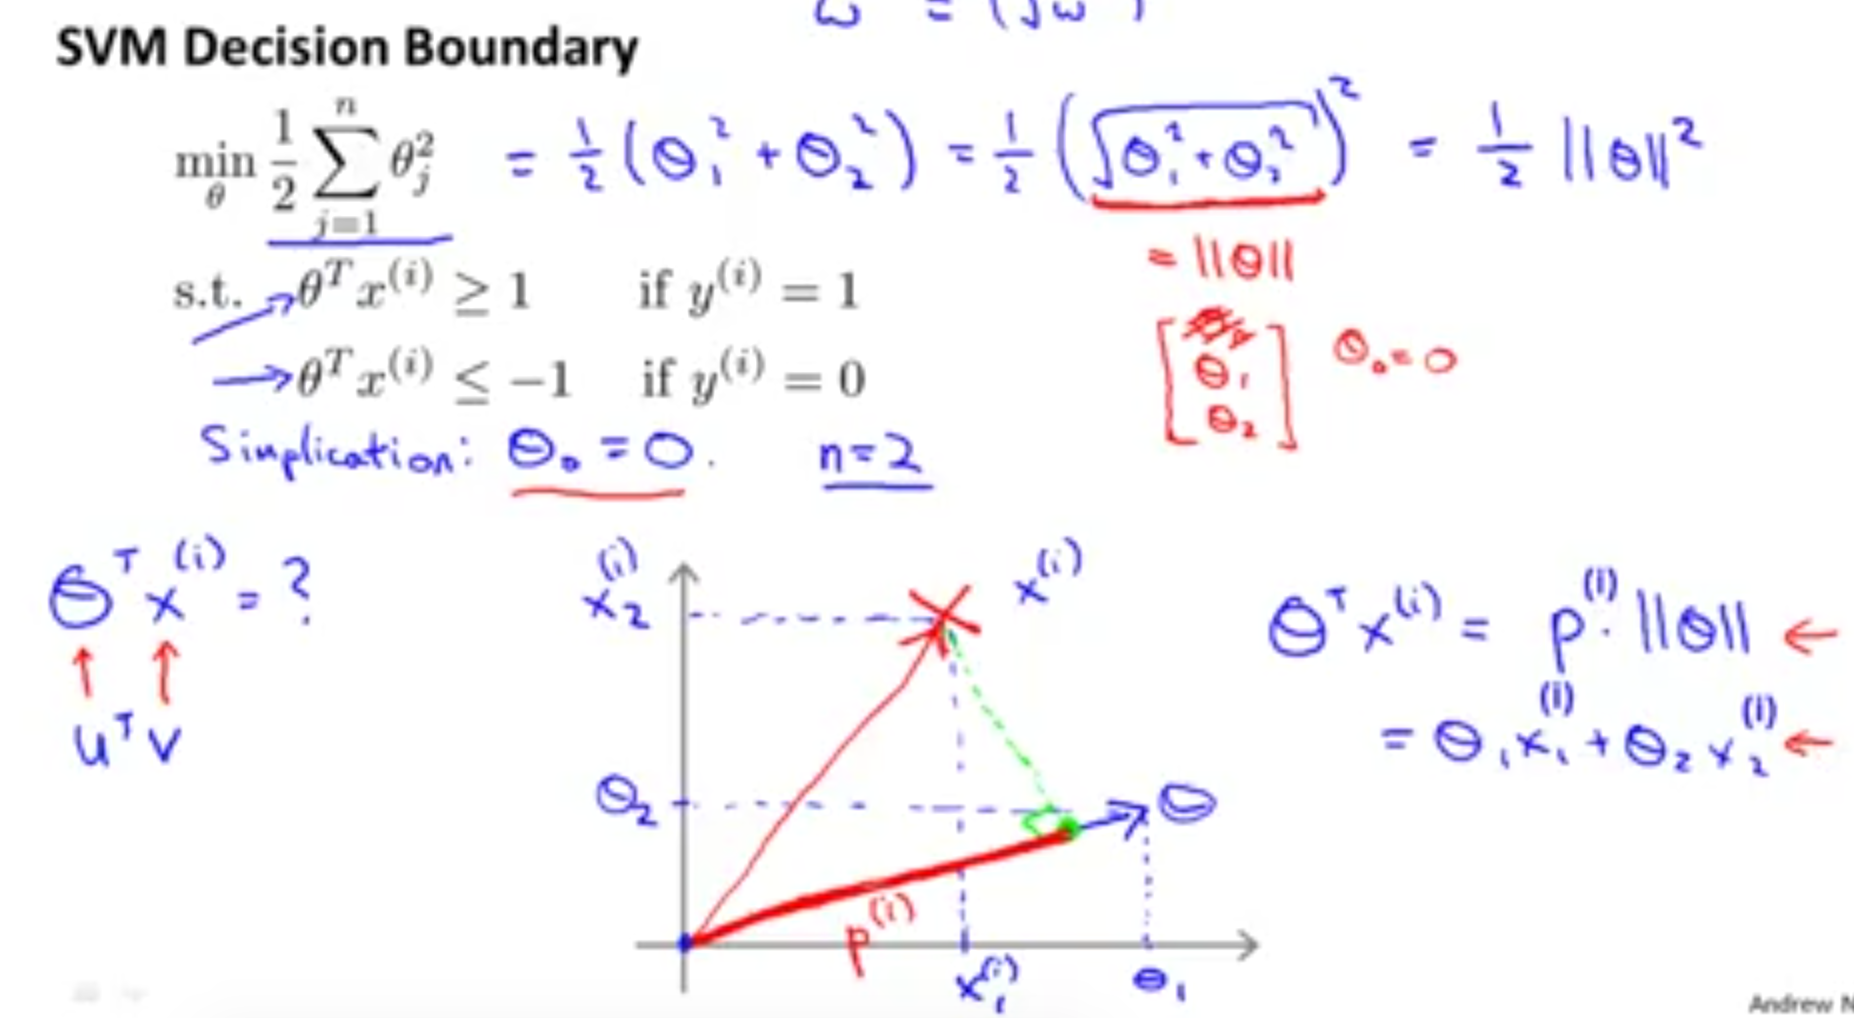 ω = (√ω )
SVM Decision Boundary
min_θ 1/2 ∑_{j=1}^{n} θ_j^2 = 1/2 (θ_1^2 + θ_2^2) = 1/2 (√(θ_1^2 + θ_2^2))^2 = 1/2 ||θ||^2
= ||θ||
s.t. θ^T x^(i) ≥ 1 if y^(i) = 1
θ^T x^(i) ≤ −1 if y^(i) = 0
[θ_1 θ_2] θ_0 = 0
Simplication: θ_0 = 0. n=2
θ^T x^(i) = ?
u^T v
x_2^(i)
x^(i)
θ_2
θ
p^(i)
x_1^(i)
θ_1
θ^T x^(i) = p^(i) · ||θ|| ←
= θ_1 x_1^(i) + θ_2 x_2^(i) ←
Andrew N